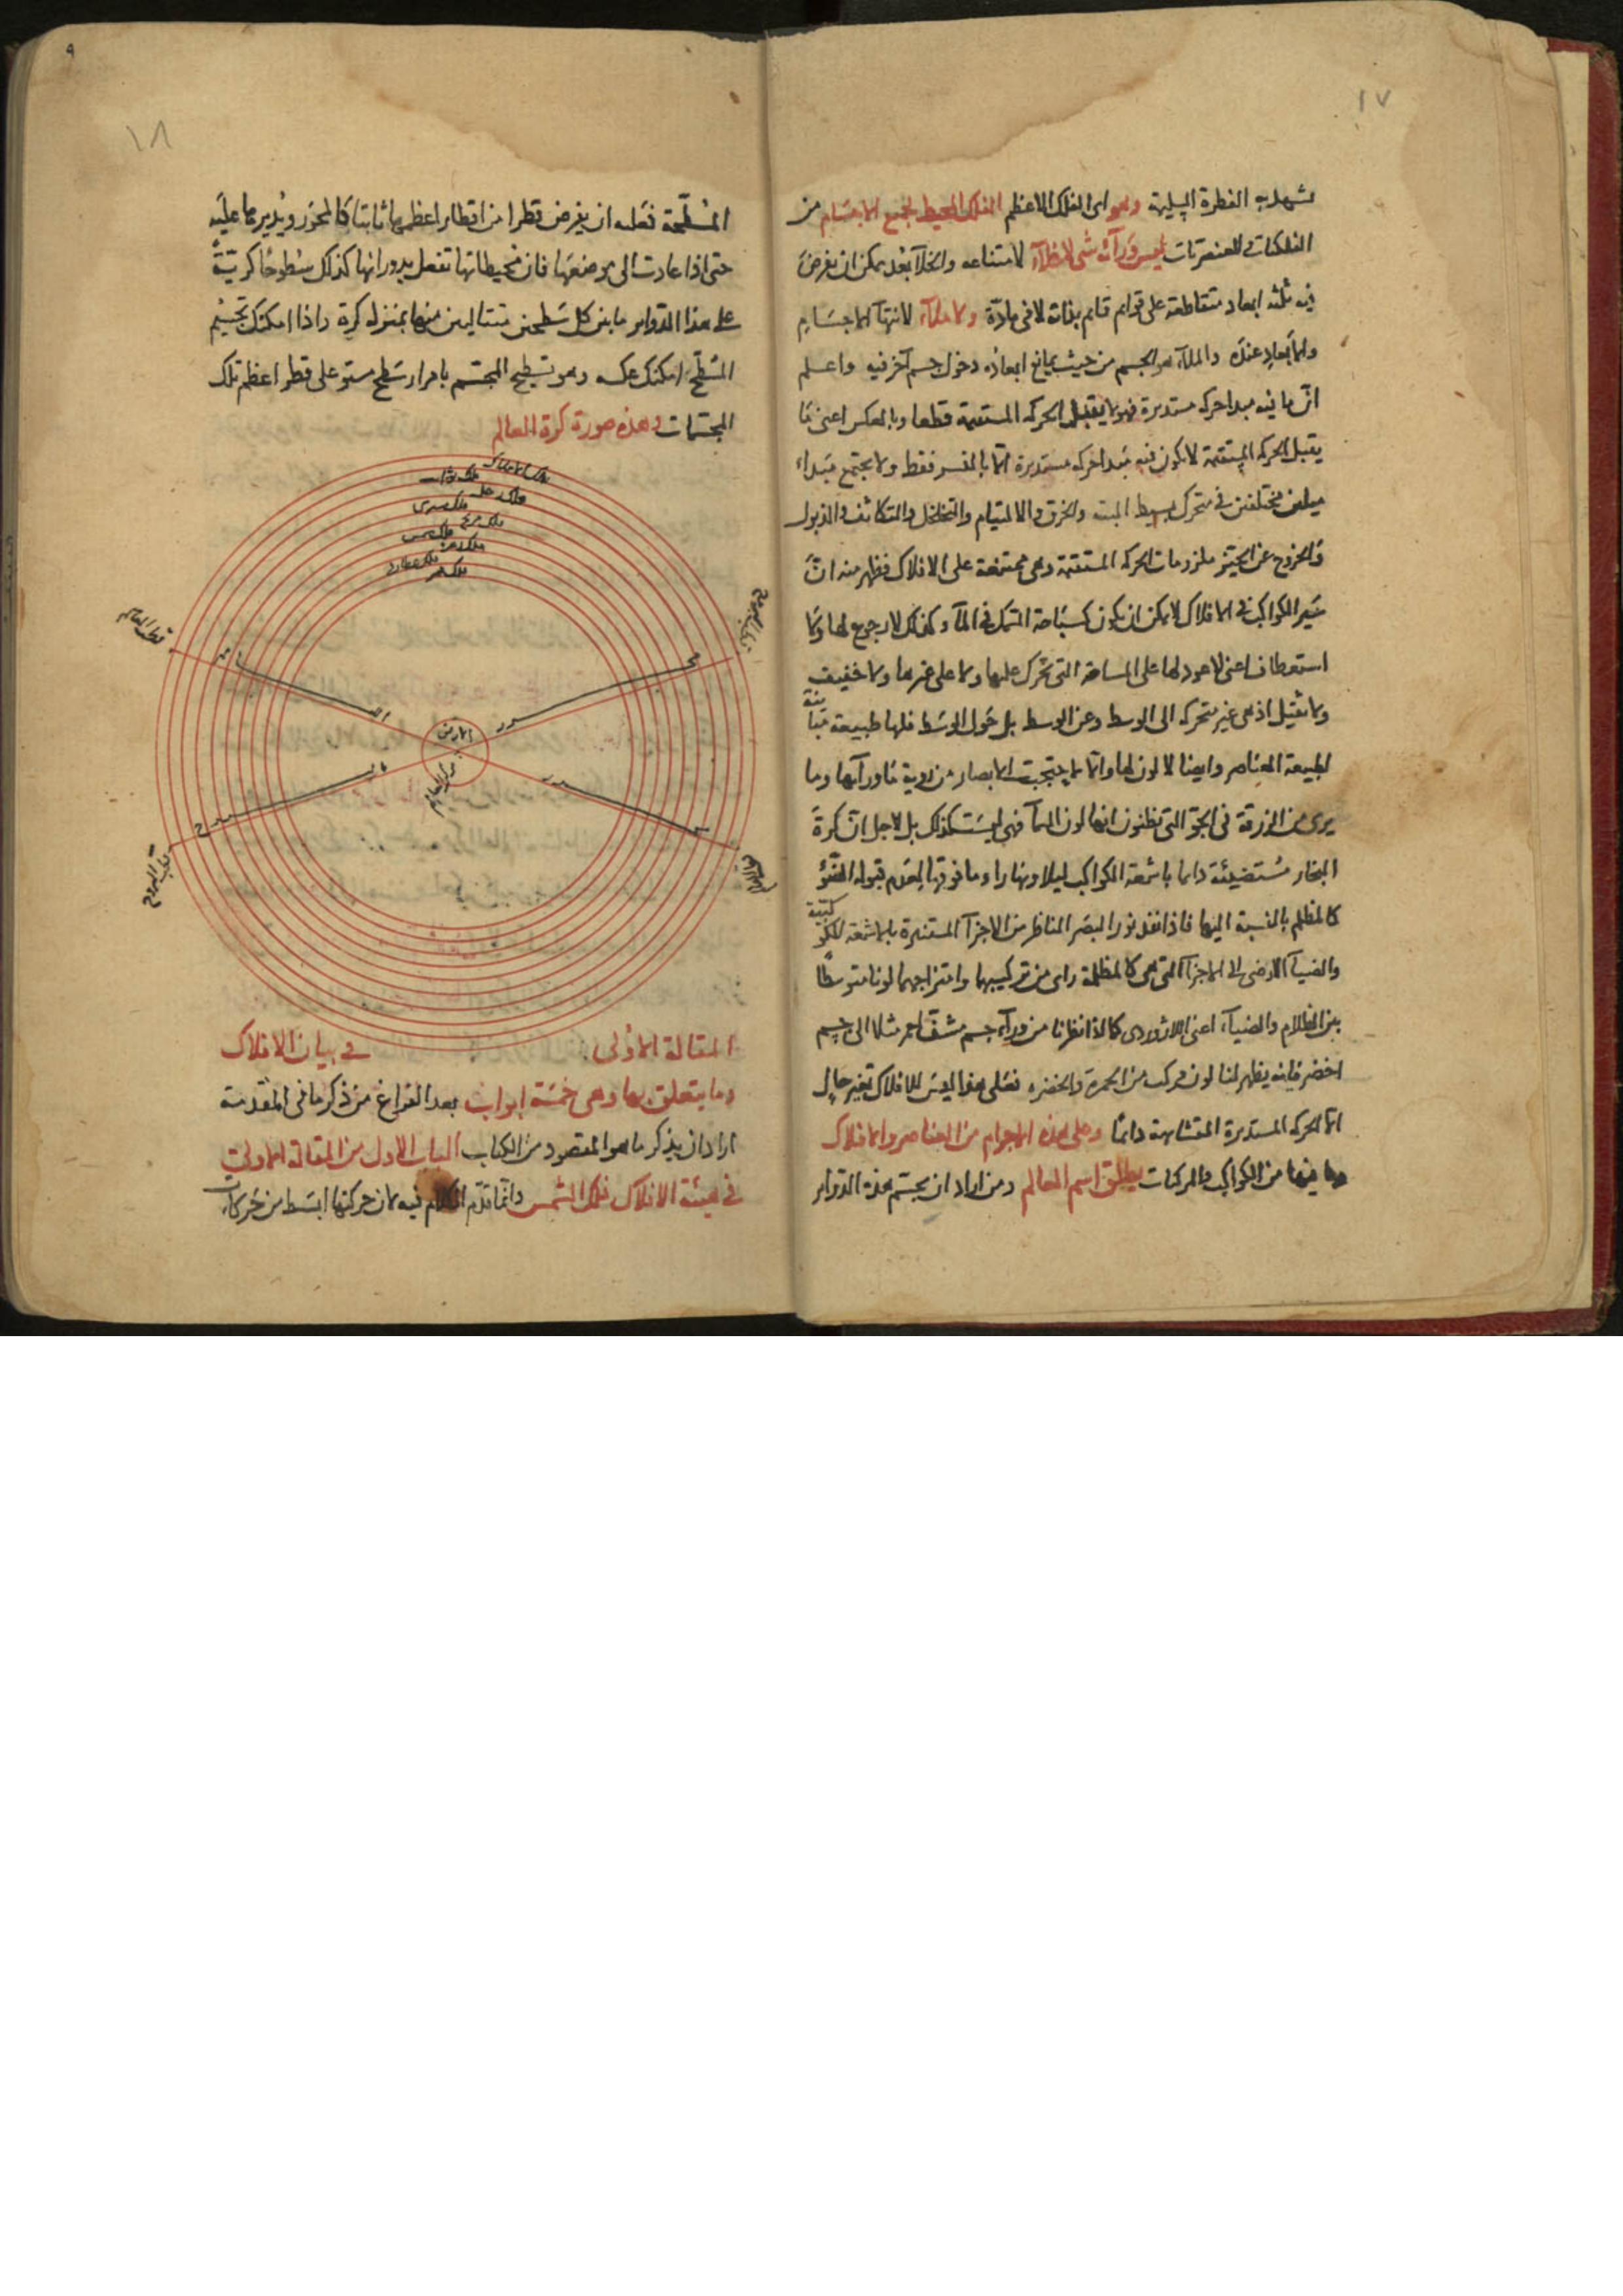 ١٧
تشهد به الفطرة السليمة وهو اى الفلك الاعظم الفلك المحيط بجميع الاجسام من
الفلكيات والعنصريات ليس ورآئه شئ لا خلآء لامتناعه والخلآ بعد يمكن ان يفرض
فيه ثلثه ابعاد متقاطعة على قوايم قايم بذاته لا فى مادّة ولا ملآء لانتهآ الاجسام
والابعاد عنده والملآء هو الجسم من حيث يمانع ابعاده دخول جسم آخر فيه واعلم
انّ ما فيه مبدا حركه مستديرة فهو لا يقبل الحركه المستقيمة قطعا وبالعكس اعنى ما
يقبل الحركه المستقيمة لا يكون فيه مبدا حركه مستديرة امّا بالقسر فقط ولا يجتمع مبداء
ميلين مختلفين فى متحرك بسيط البتة والخرق والالتيام والتخلخل والتكاثف والذبول
والخروج عن الحيّز ملزومات الحركه المستقيمة وهى ممتنعة على الافلاك فظهر منه انّ
سير الكواكب فى الافلاك لا يمكن ان يكون كسباحة السمك فى المآء وكذلك لا رجوع لها ولا
استعطاف اعنى لا عود لها على المسافة التى تحرك عليها ولا على غيرها ولا خفيف
ولا ثقيل اذ هى غير متحركه الى الوسط وعن الوسط بل حول الوسط فلها طبيعة مباينة
لطبيعة العناصر وايضا لا لون لها والّا لاحتجبت الابصار عن رويه ما ورآءها وما
يرى من الزرقة فى الجوّ التى يظنون انها لون السمآ فهى ليست كذلك بل لاجل انّ كرة
البخار مستضيئة دايما باشعة الكواكب ليلا ونهارا وما فوقها لعدم قبوله الضوء
كالمظلم بالنسبة اليها فاذا نفذ نور البصر الناظر من الاجزآ المستنيرة بالاشعة الكوكبيّة
والضيآ الارضى الى الاجزآ التى هى كالمظلمة راى من تركيبهما وامتزاجهما لونا متوسطًا
بين الظلام والضيآء اعنى اللاژوردى كما اذا نظرنا من ورآء جسم مشف احمر مثلا الى جسم
اخضر فانه يظهر لنا لون مركب من الحمرة والخضره فعلى هذا ليس للافلاك تغير حال
الّا الحركه المستديرة المتشابهة دائما وعلى هذه الاجرام من العناصر والافلاك
وما فيها من الكواكب والمركبات يطلق اسم العالم ومن اراد ان يجسّم هذه الدواير
٩
١٨
المسطّحة فعليه ان يفرض قطرا من اقطار اعظمها ثابتا كالمحور ويديرها عليه
حتى اذا عادت الى موضعها فان محيطاتها تفعل بدورانها كذلك سطوحًا كريّةً
على هذا الدواير ما بين كل سطحين متتاليين منها بمنزله كرة واذا امكنك تجسيم
المسطّح امكنك عكسه وهو تسطيح المجسّم بامرار سطح مستو على قطر اعظم تلك
المجسّمات وهذه صورة كرة العالم
فلك الافلاك
فلك ثوابت
فلك زحل
فلك مشترى
فلك مريخ
فلك شمس
فلك زهره
فلك عطارد
فلك قمر
قطب العالم
قطب البروج
محور
الارض
مركز العالم
قطب البروج
قطب العالم
المقالة الاولى فى بيان الافلاك
وما يتعلق بها وهى خمسة ابواب بعد الفراغ من ذكر ما فى المقدمة
اراد ان يذكر ما هو المقصود من الكتاب الباب الاول من المقالة الاولى
فى هيئة الافلاك فلك الشمس وانّما قدّم الكلام فيه لان حركتها ابسط من حركات